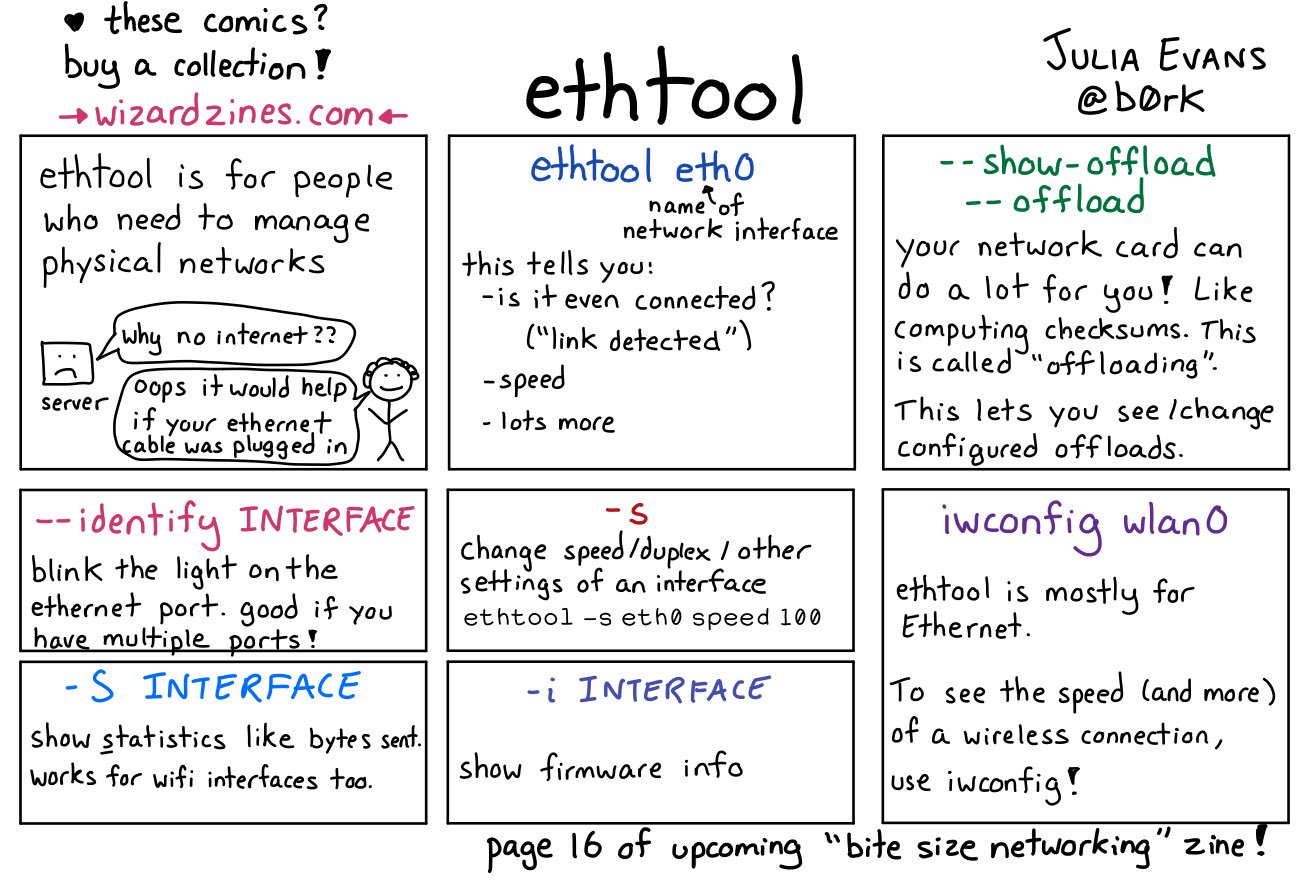 ♥ these comics?
buy a collection!
→wizardzines.com←
ethtool
JULIA EVANS
@b0rk
ethtool is for people
who need to manage
physical networks
why no internet??
server
oops it would help
if your ethernet
cable was plugged in
ethtool eth0
name of
network interface
this tells you:
-is it even connected?
("link detected")
-speed
- lots more
--show-offload
--offload
your network card can
do a lot for you! Like
computing checksums. This
is called "offloading".
This lets you see/change
configured offloads.
--identify INTERFACE
blink the light on the
ethernet port. good if you
have multiple ports!
-s
change speed/duplex/other
settings of an interface
ethtool -s eth0 speed 100
iwconfig wlan0
ethtool is mostly for
Ethernet.
To see the speed (and more)
of a wireless connection,
use iwconfig!
-S INTERFACE
show statistics like bytes sent.
works for wifi interfaces too.
-i INTERFACE
show firmware info
page 16 of upcoming "bite size networking" zine!